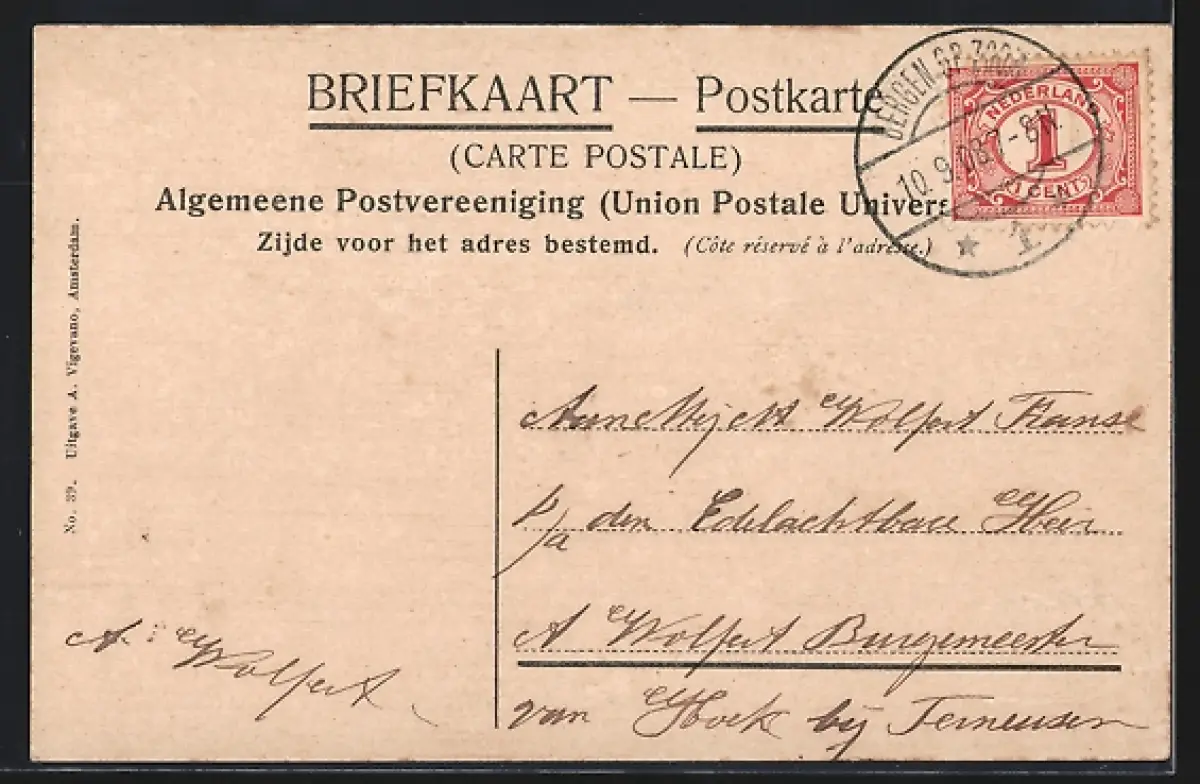 BRIEFKAART — Postkarte
(CARTE POSTALE)
Algemeene Postvereeniging (Union Postale Univers
Zijde voor het adres bestemd. (Côte réservé à l'adresse.)
BERGEN OP ZOOM
10.9.08 7-8N.
NEDERLAND
1
CENT
No. 39. Uitgave A. Vigevano, Amsterdam.
Wolfert Franse
p/a den Edelachtbare Heer
A Wolfert Burgemeester
van Hoek bij Terneusen
A: Wolfert